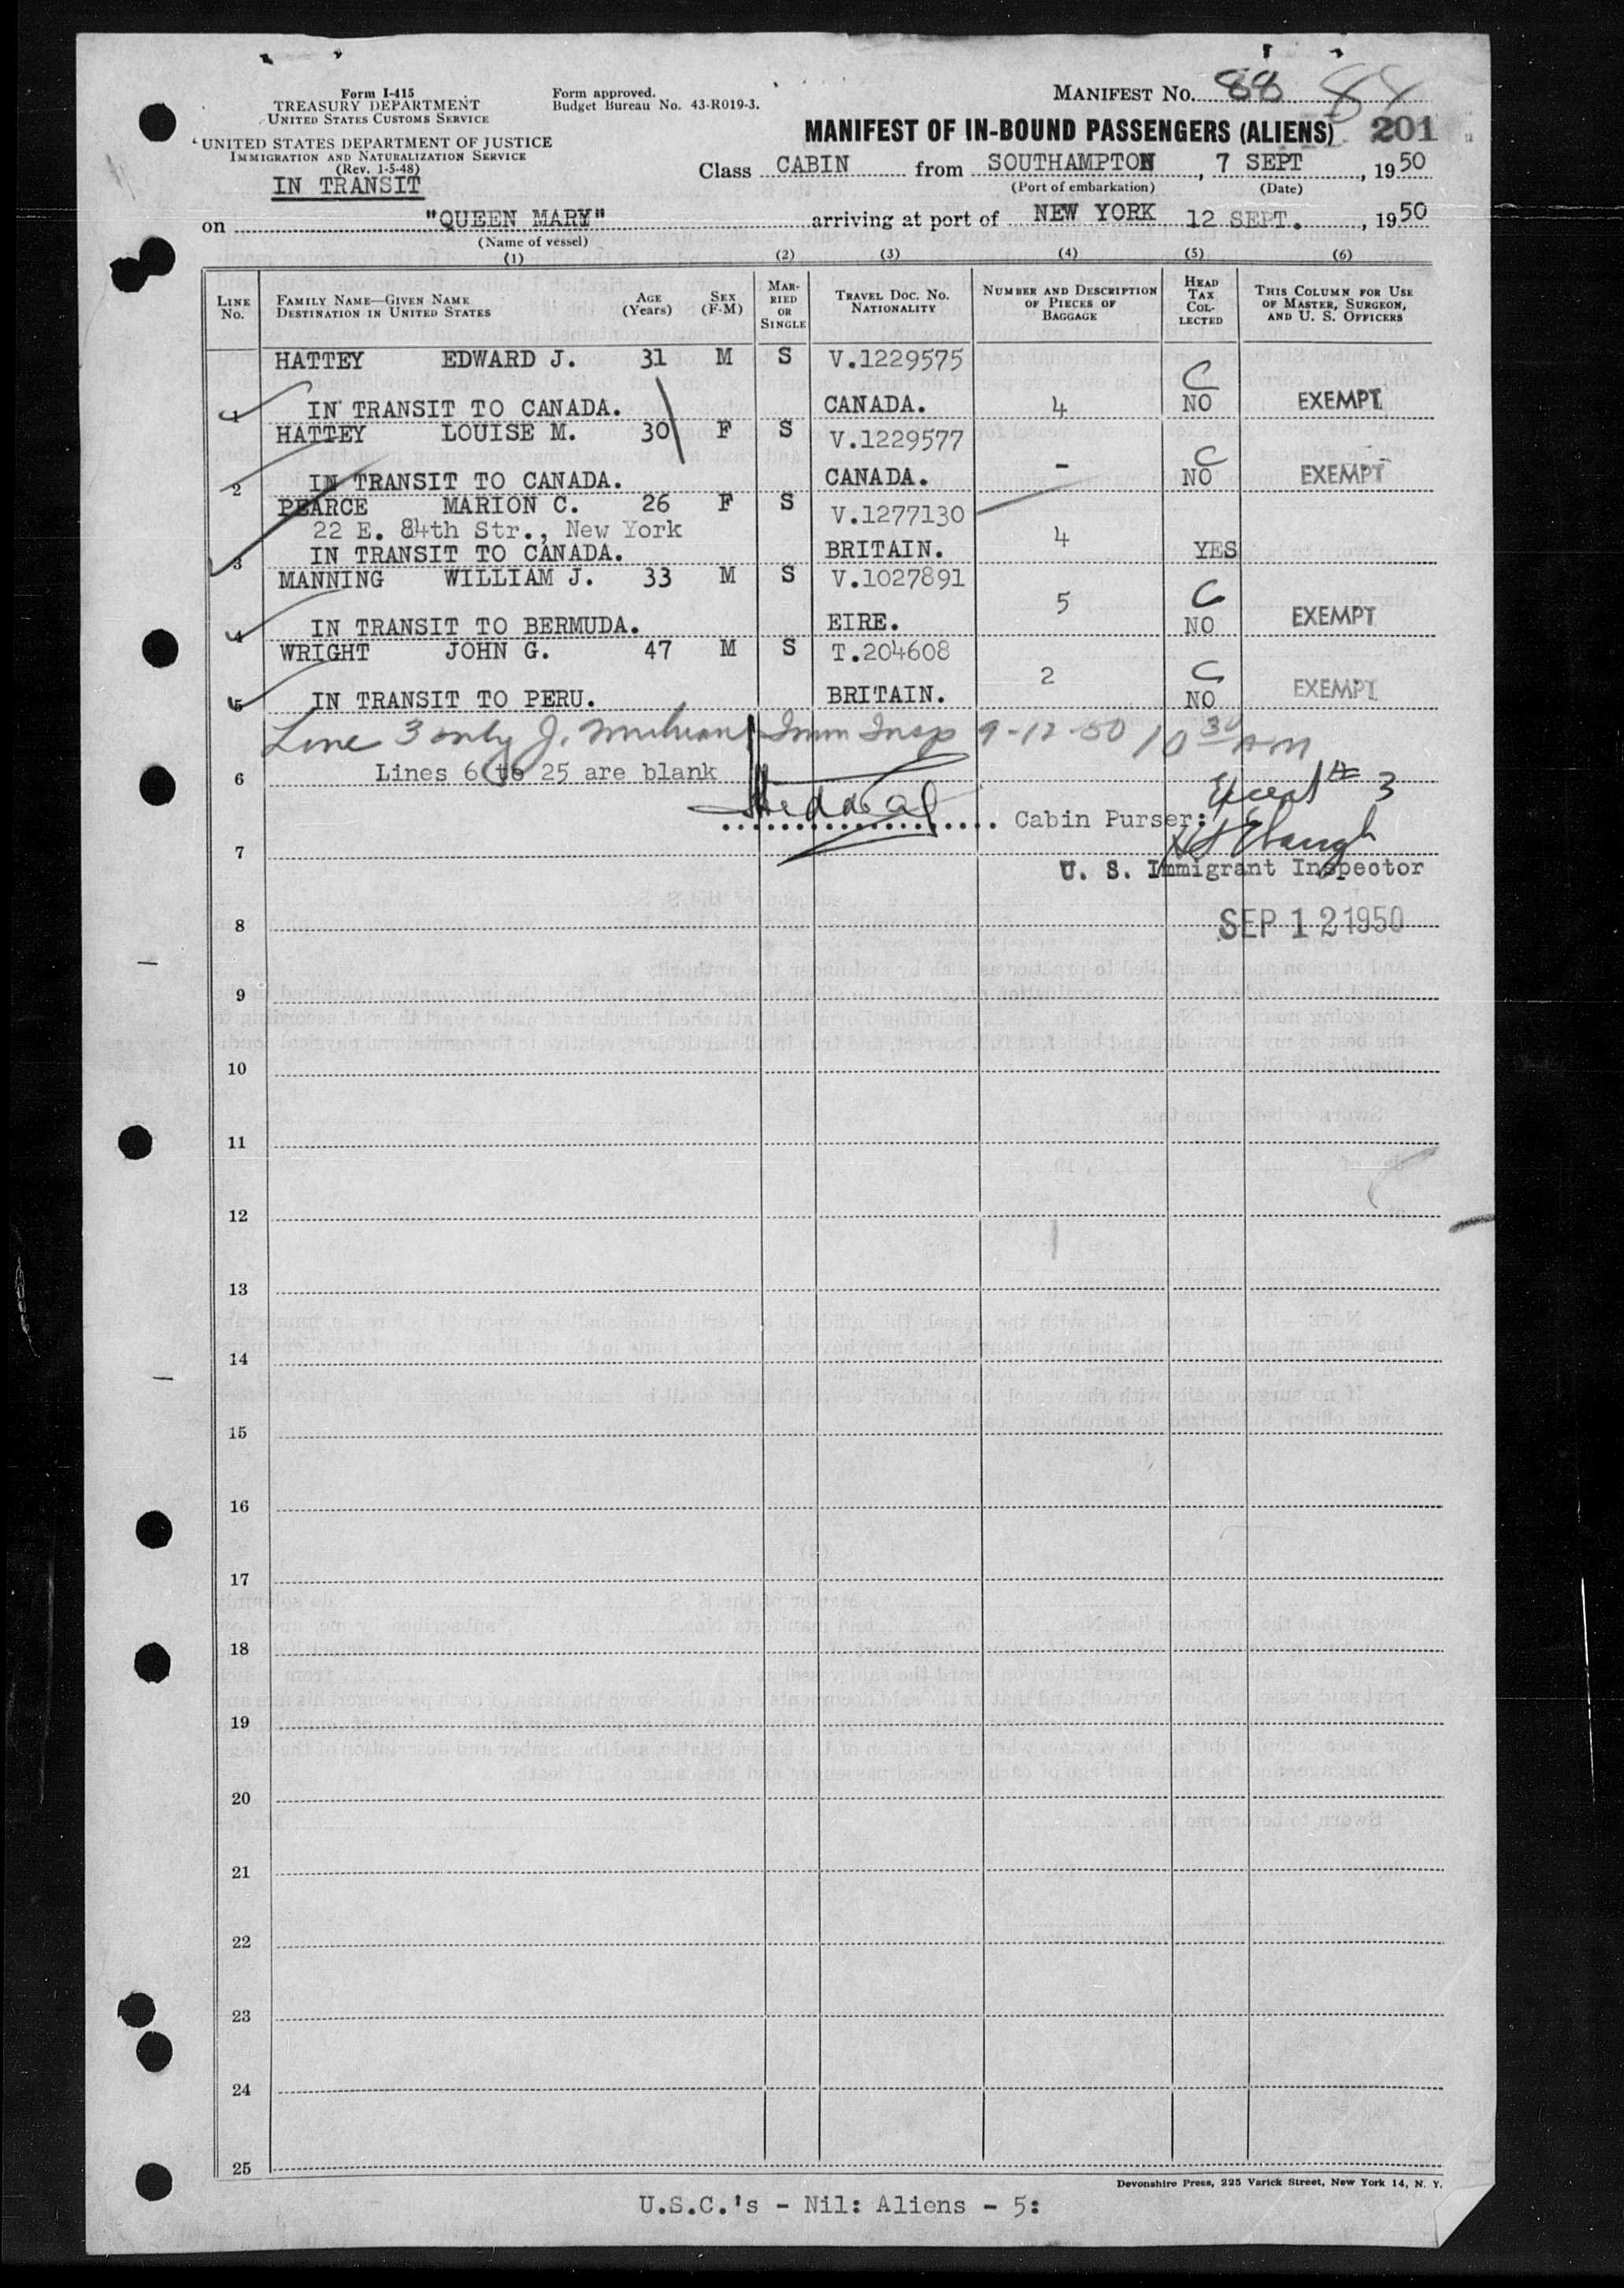 Form I-415
TREASURY DEPARTMENT
UNITED STATES CUSTOMS SERVICE
UNITED STATES DEPARTMENT OF JUSTICE
IMMIGRATION AND NATURALIZATION SERVICE
(Rev. 1-5-48)
IN TRANSIT
Form approved.
Budget Bureau No. 43-R019-3.
MANIFEST No. 88 84
MANIFEST OF IN-BOUND PASSENGERS (ALIENS) 201
Class CABIN from SOUTHAMPTON, 7 SEPT, 1950
(Port of embarkation) (Date)
on "QUEEN MARY" arriving at port of NEW YORK 12 SEPT., 1950
(Name of vessel)
(1) (2) (3) (4) (5) (6)
LINE No. FAMILY NAME—GIVEN NAME DESTINATION IN UNITED STATES AGE (Years) SEX (F-M) MARRIED OR SINGLE TRAVEL DOC. NO. NATIONALITY NUMBER AND DESCRIPTION OF PIECES OF BAGGAGE HEAD TAX COLLECTED THIS COLUMN FOR USE OF MASTER, SURGEON, AND U. S. OFFICERS
HATTEY EDWARD J. 31 M S V.1229575
1 IN TRANSIT TO CANADA. CANADA. 4 C NO EXEMPT
HATTEY LOUISE M. 30 F S V.1229577
2 IN TRANSIT TO CANADA. CANADA. - C NO EXEMPT
PEARCE MARION C. 26 F S V.1277130
22 E. 84th Str., New York 4
3 IN TRANSIT TO CANADA. BRITAIN. YES
MANNING WILLIAM J. 33 M S V.1027891
4 IN TRANSIT TO BERMUDA. EIRE. 5 C NO EXEMPT
WRIGHT JOHN G. 47 M S T.204608
5 IN TRANSIT TO PERU. BRITAIN. 2 C NO EXEMPT
Line 3 only J. Imm Insp 9-12-50 10 30 AM
6 Lines 6 to 25 are blank
Except # 3
Cabin Purser:
7
U. S. Immigrant Inspector
8 SEP 12 1950
9
10
11
12
13
14
15
16
17
18
19
20
21
22
23
24
25
Devonshire Press, 225 Varick Street, New York 14, N. Y.
U.S.C.'s - Nil: Aliens - 5: